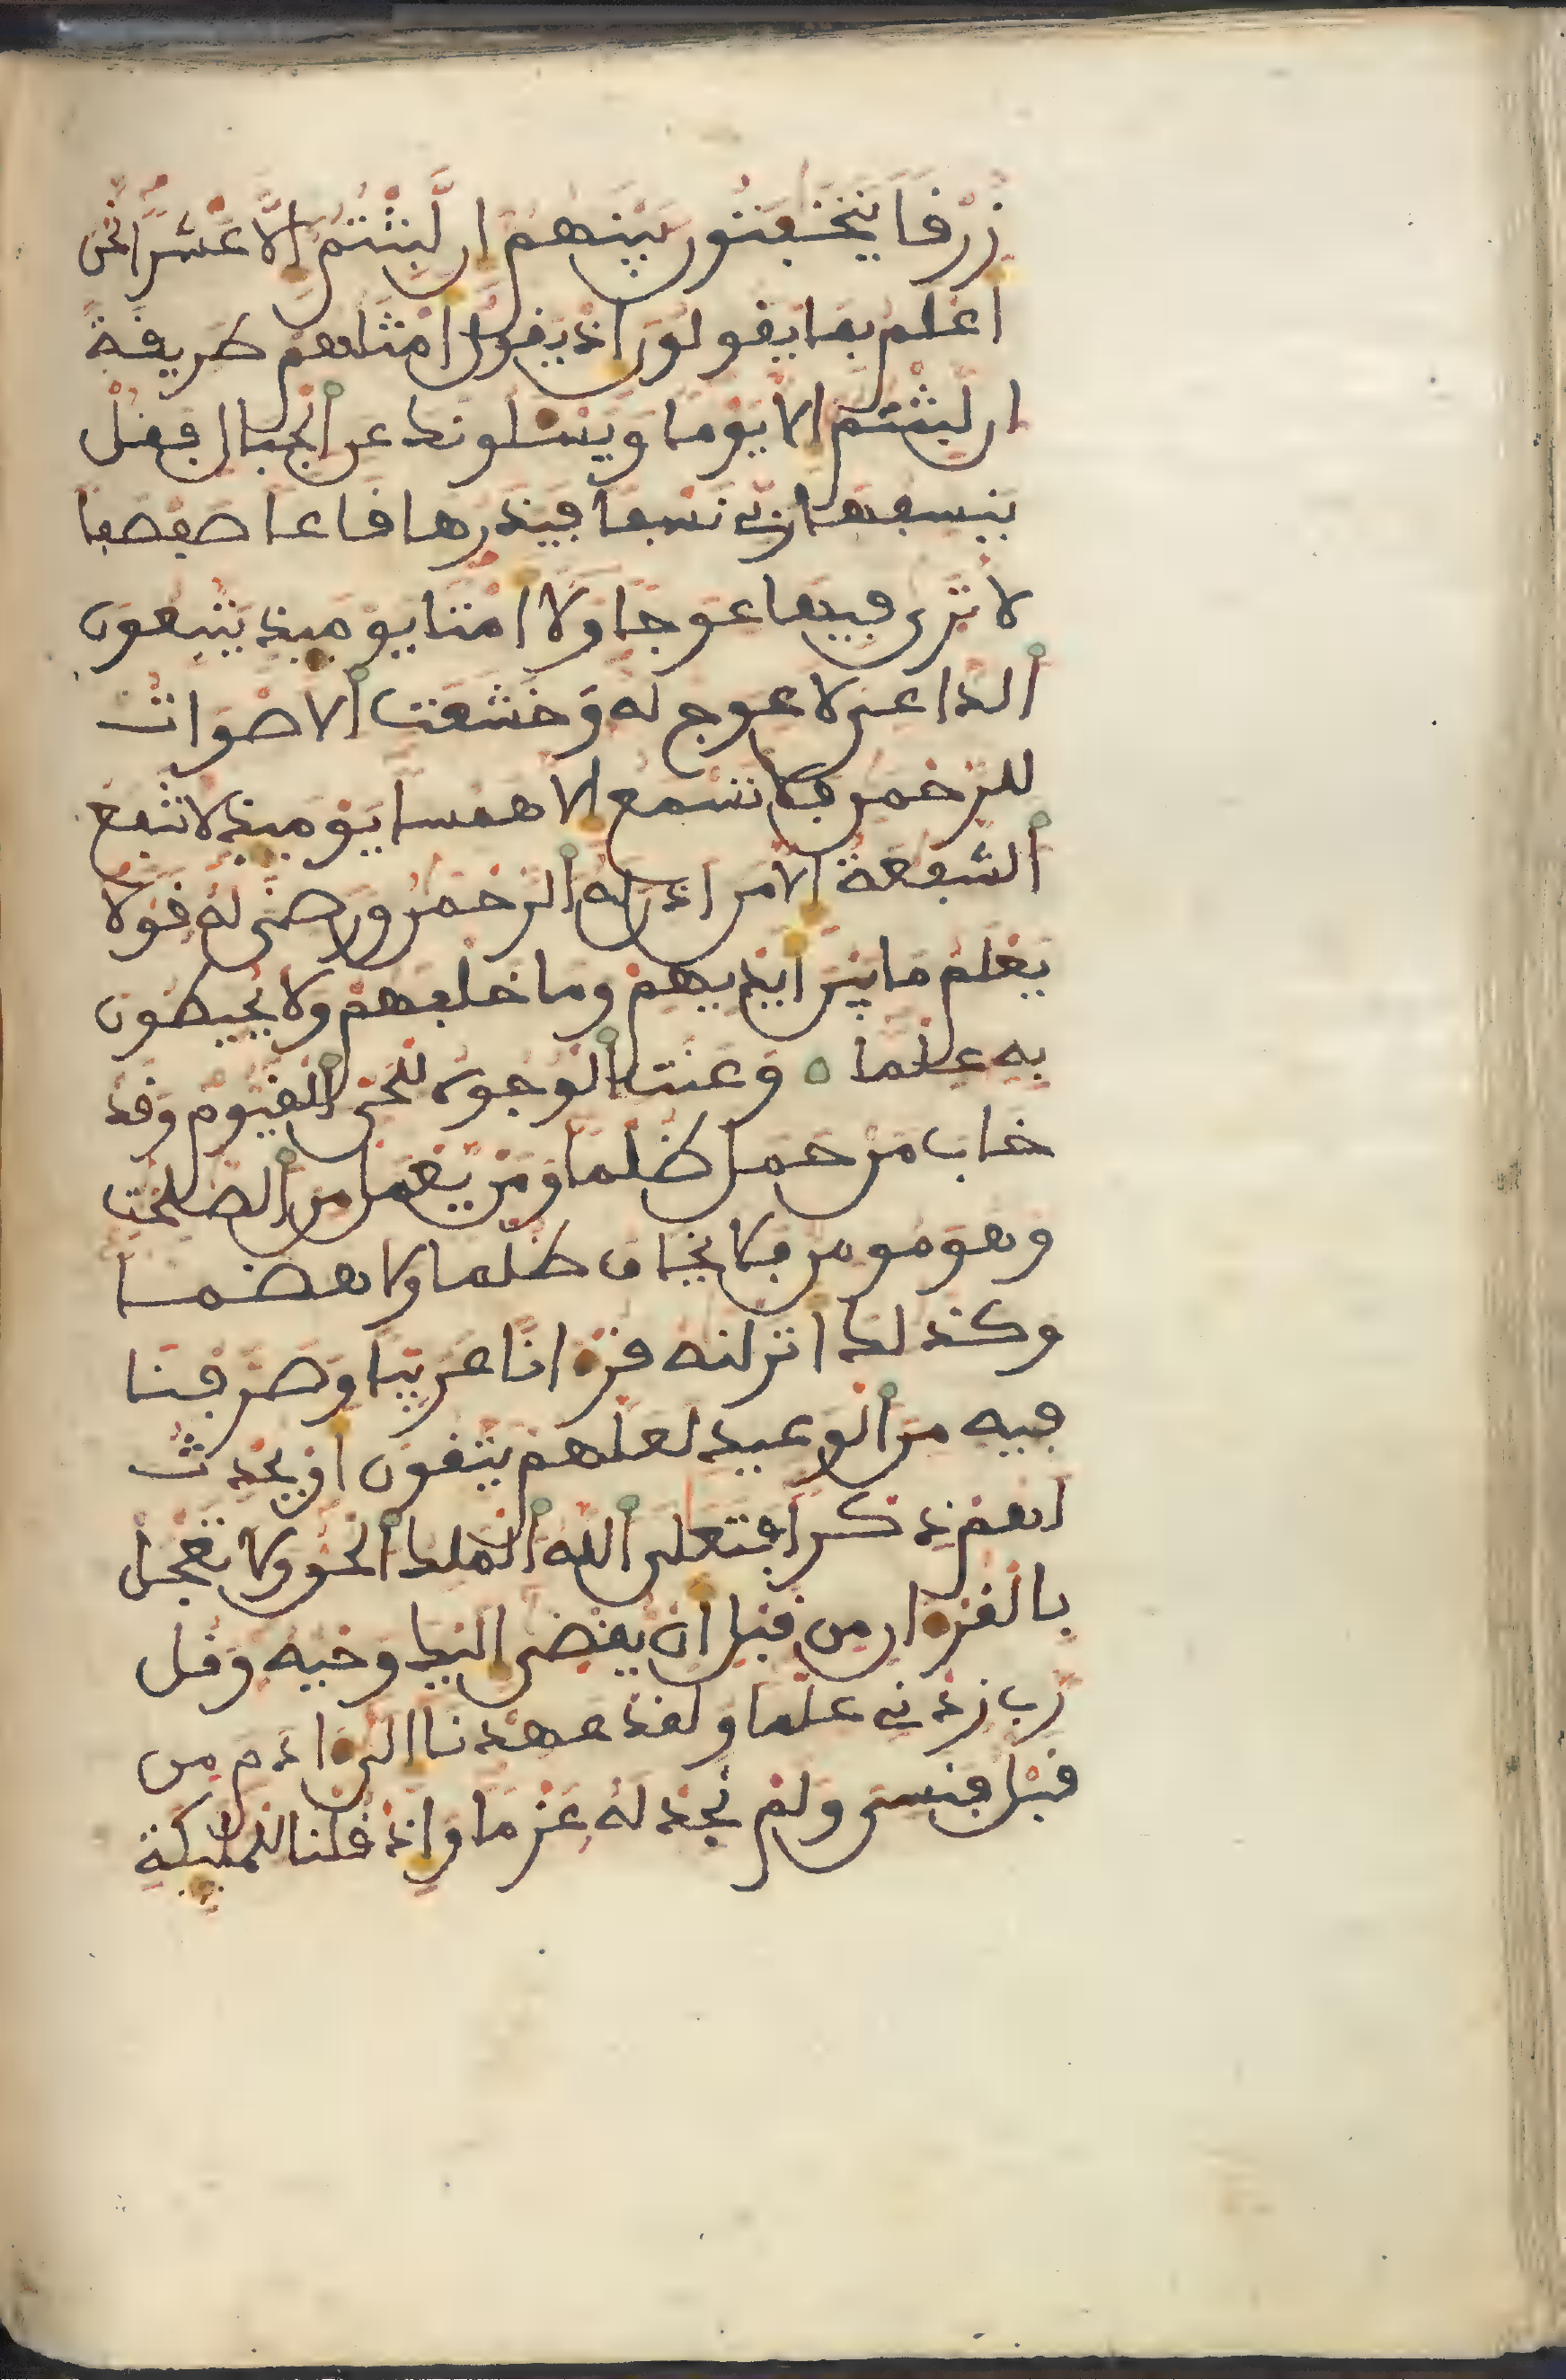 زرقا يتخفتون بينهم ان لبثتم الا عشرا نحن
اعلم بما يقولون اذ يقول امثلهم طريقة
ان لبثتم الا يوما ويسلونك عن الجبال فقل
ينسفها ربي نسفا فيذرها قاعا صفصفا
لا ترى فيها عوجا ولا امتا يوميذ يتبعون
الداعي لا عوج له وخشعت الاصوات
للرحمن فلا تسمع الا همسا يوميذ لا تنفع
الشفعة الا من اذن له الرحمن ورضى له قولا
يعلم ما بين ايديهم وما خلفهم ولا يحيطون
به علما ه وعنت الوجوه للحي القيوم وقد
خاب من حمل ظلما ومن يعمل من الصلحت
وهو مومن فلا يخاف ظلما ولا هضما
وكذلك انزلنه قرءانا عربيا وصرفنا
فيه من الوعيد لعلهم يتقون او يحدث
لهم ذكرا فتعلى الله الملك الحق ولا تعجل
بالقرءان من قبل ان يقضى اليك وحيه وقل
رب زدني علما ولقد عهدنا الى ءادم من
قبل فنسى ولم نجد له عزما واذ قلنا للمليكة